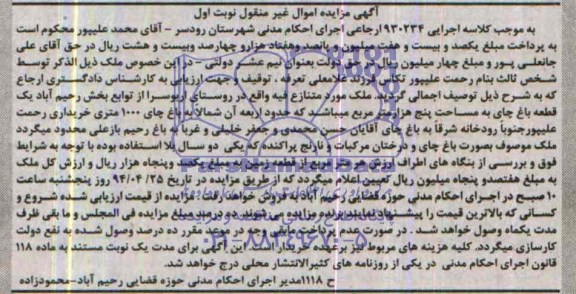 آگهی مزایده اموال غیر منقول نوبت اول
به موجب کلاسه اجرایی ۹۳۰۲۳۴ ارجاعی اجرای احکام مدنی شهرستان رودسر - آقای محمد علیپور محکوم است
به پرداخت مبلغ یکصد و بیست و هفت میلیون و پانصد وهفتاد هزارو چهارصد وبیست و هشت ریال در حق آقای علی
جانعلی پور و مبلغ چهار میلیون ریال در حق دولت بعنوان نیم عشر دولتی - در این خصوص ملک ذیل الذکر توسط
شخص ثالث بنام رحمت علیپور تکلی فرزند غلامعلی تعرفه ، توقیف و جهت ارزیابی به کارشناس دادگستری ارجاع
که به شرح ذیل توصیف اجمالی گردید. ملک مورد متنازع فیه واقع در روستای زیوسرا از توابع بخش رحیم آباد یک
قطعه باغ چای به مساحت پنج هزارمتر مربع میباشد که حدود اربعه آن شمالاً به باغ چای ۱۰۰۰ متری خریداری رحمت
علیپورجنوباً رودخانه شرقاً به باغ چای آقایان حسن محمدی و جعفر خلیلی و غرباً به باغ رحیم بازعلی محدود میگردد
ملک موصوف بصورت باغ چای و درختان مرکبات و نارنج پراکنده که یکی دو سال بلا استفاده بوده با توجه به شرایط
فوق و بررسی از بنگاه های اطراف ارزش هر متر مربع از قطعه زمین به مبلغ یکصد وپنجاه هزار ریال و ارزش کل ملک
به مبلغ هفتصدو پنجاه میلیون ریال تعیین اعلام میگردد که از طریق مزایده در تاریخ ۹۴/۰۴/۲۵ روز پنجشنبه ساعت
۱۰ صبح در اجرای احکام مدنی حوزه قضایی رحیم آباد به فروش خواهد رفت . مزایده از قیمت ارزیابی شده شروع و
کسانی که بالاترین قیمت را پیشنهاد نمایند برنده مزایده می شوند. ده درصد مبلغ مزایده فی المجلس و ما بقی ظرف
مدت یکماه وصول خواهد شد . در صورت عدم پرداخت مابقی وجه در موعد مقرر ده درصد وصول شده به نفع دولت
کارسازی میگردد. کلیه هزینه های مربوط نیز برعهده خریدار است. این آگهی برای مدت یک نوبت مستند به ماده ۱۱۸
قانون اجرای احکام مدنی در یکی از روزنامه های کثیرالانتشار محلی درج خواهد شد.
ح ۱۱۱۸مدیر اجرای احکام مدنی حوزه قضایی رحیم آباد-محمودزاده
۰۲۱-۸۸۳۴۹۶۷۰-۵